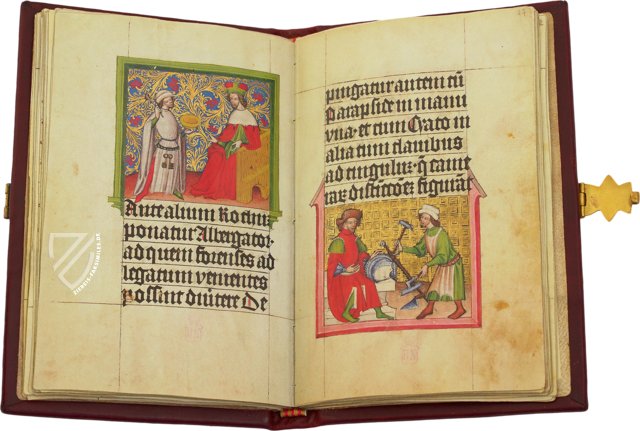 Ante alium Rochum
ponatur Albergator
ad quem forenses ad
legatum venientes
possant diutere De
pingatur autem cū
Parapside in manu
vna et cum Crato in
alia cum clauibus
ad cingulus q came
rar distictōes figurāt
ZIEREIS-FAKSIMILES.DE